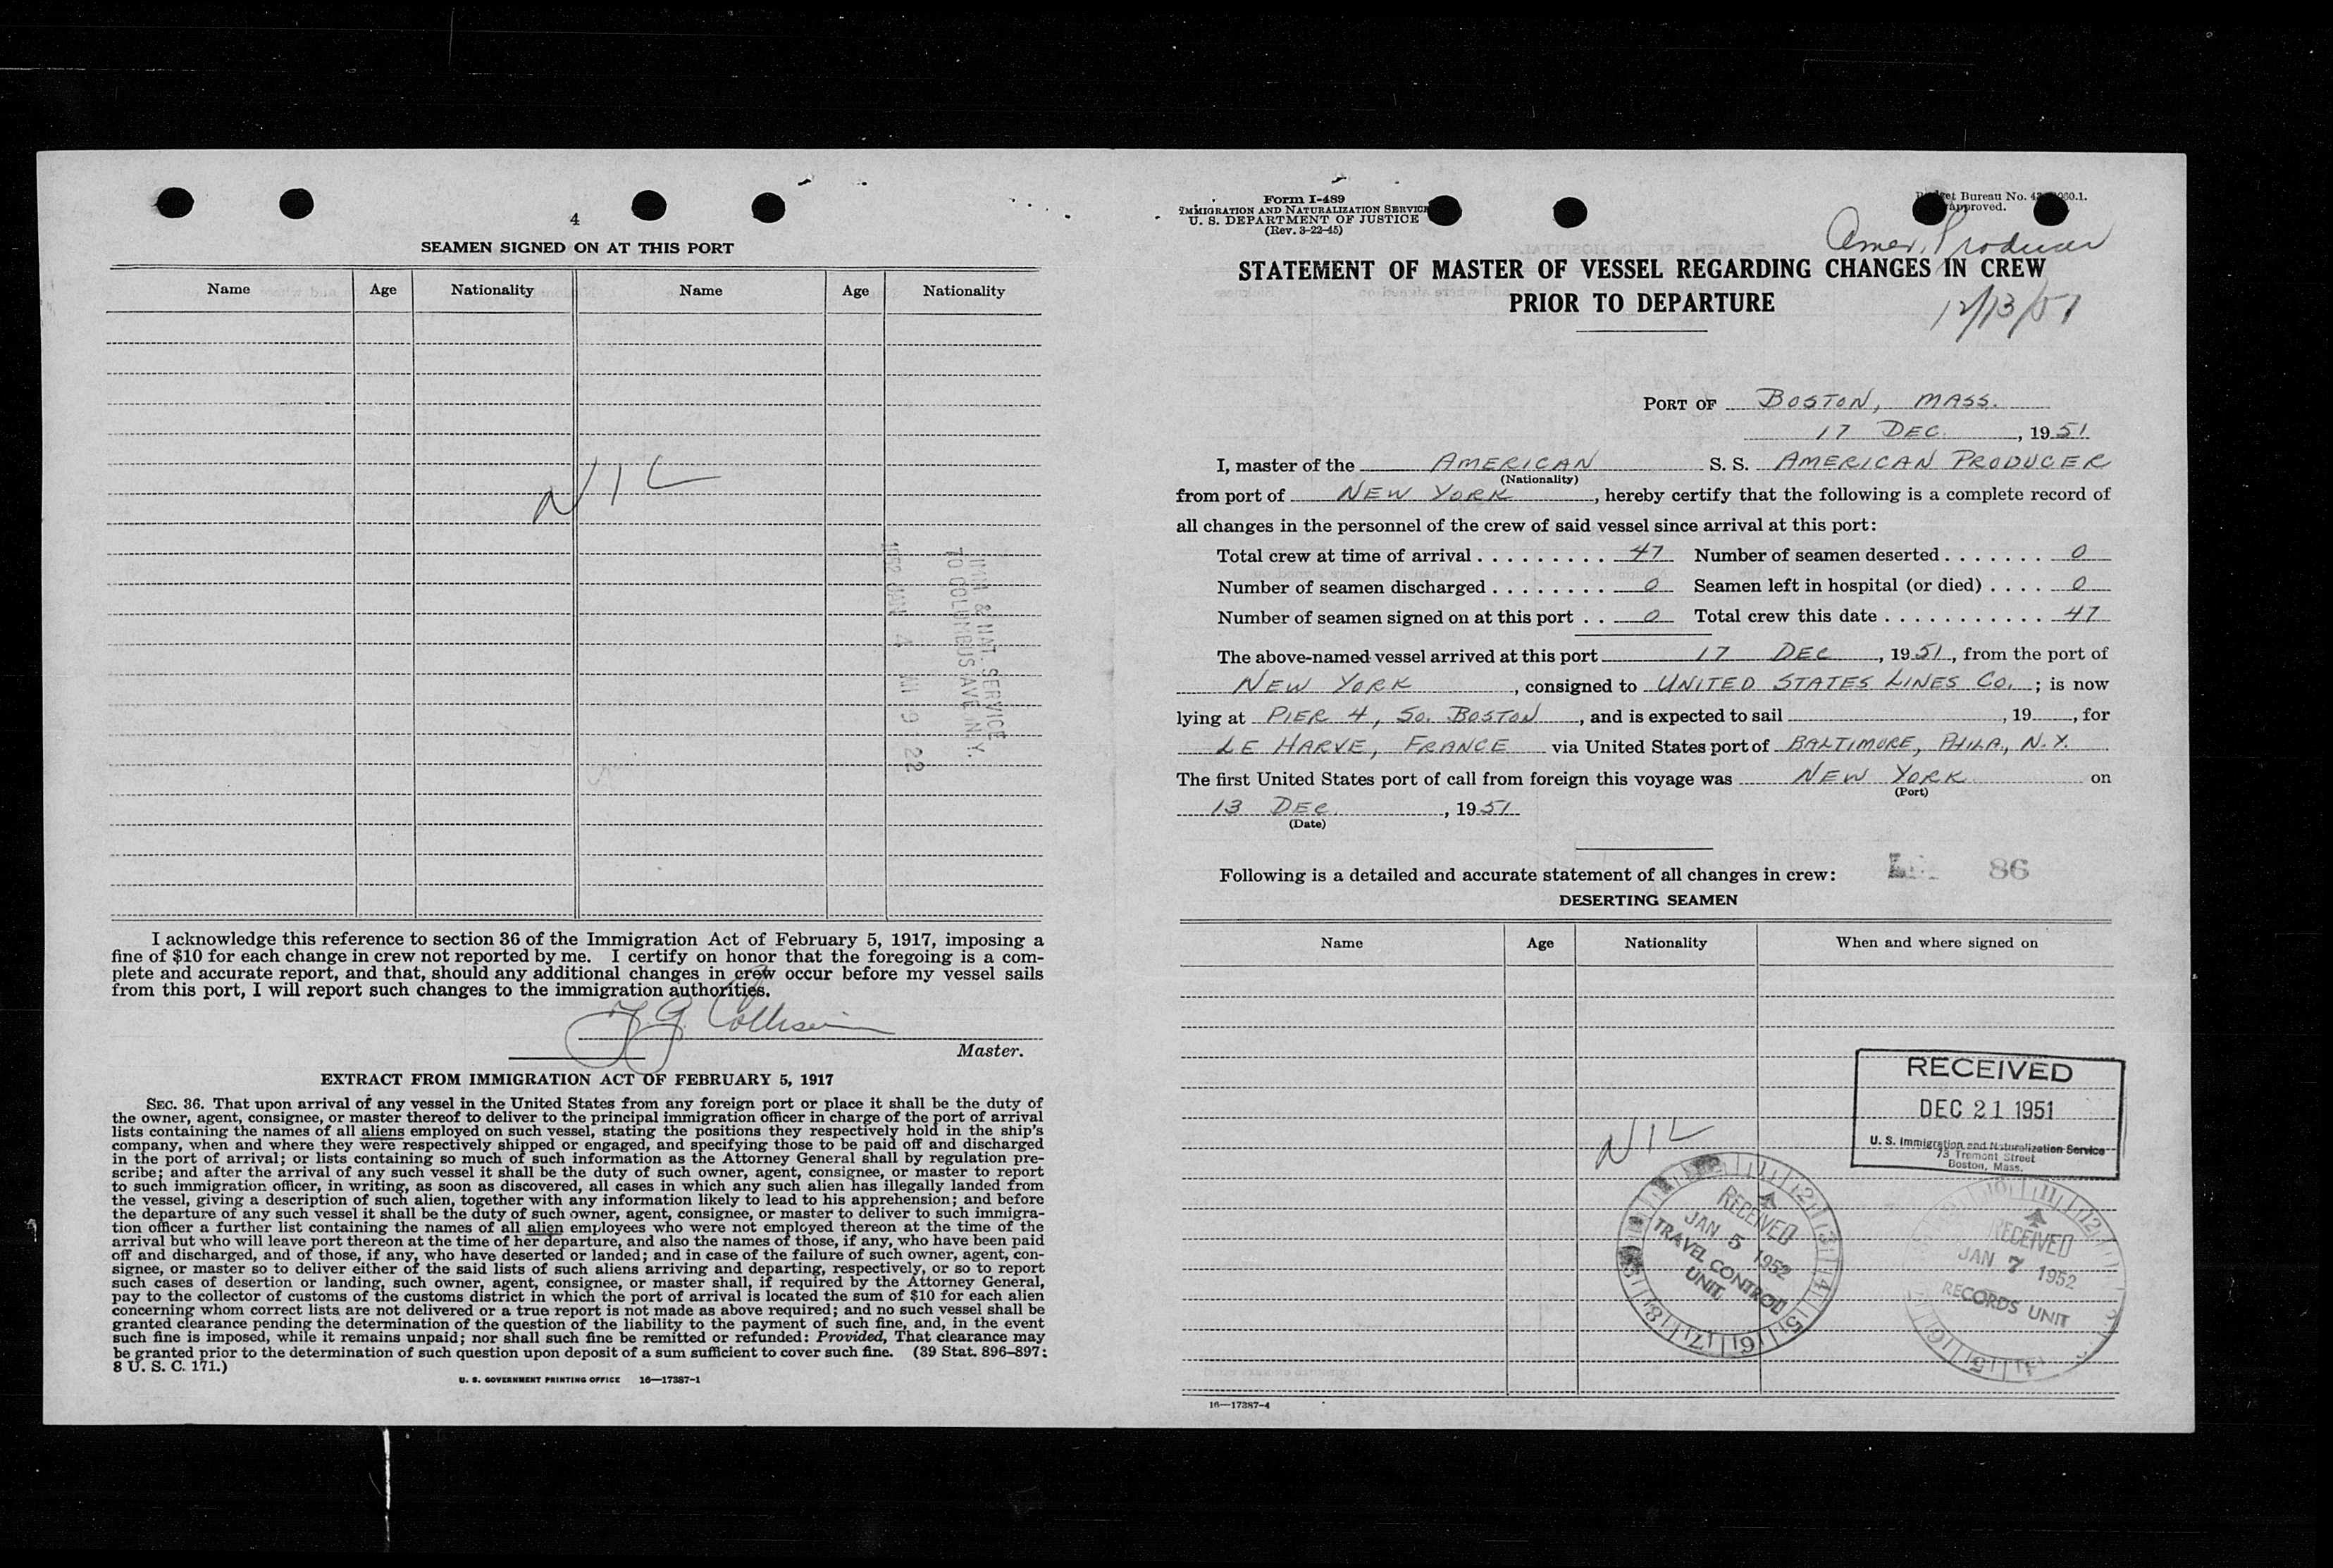 4
SEAMEN SIGNED ON AT THIS PORT
Name Age Nationality Name Age Nationality
NIL
IMM & NAT. SERVICE
70 COLUMBUS AVE. N.Y.
1952 JAN 4 AM 9 22
I acknowledge this reference to section 36 of the Immigration Act of February 5, 1917, imposing a
fine of $10 for each change in crew not reported by me. I certify on honor that the foregoing is a com-
plete and accurate report, and that, should any additional changes in crew occur before my vessel sails
from this port, I will report such changes to the immigration authorities.
Master.
EXTRACT FROM IMMIGRATION ACT OF FEBRUARY 5, 1917
SEC. 36. That upon arrival of any vessel in the United States from any foreign port or place it shall be the duty of
the owner, agent, consignee, or master thereof to deliver to the principal immigration officer in charge of the port of arrival
lists containing the names of all aliens employed on such vessel, stating the positions they respectively hold in the ship's
company, when and where they were respectively shipped or engaged, and specifying those to be paid off and discharged
in the port of arrival; or lists containing so much of such information as the Attorney General shall by regulation pre-
scribe; and after the arrival of any such vessel it shall be the duty of such owner, agent, consignee, or master to report
to such immigration officer, in writing, as soon as discovered, all cases in which any such alien has illegally landed from
the vessel, giving a description of such alien, together with any information likely to lead to his apprehension; and before
the departure of any such vessel it shall be the duty of such owner, agent, consignee, or master to deliver to such immigra-
tion officer a further list containing the names of all alien employees who were not employed thereon at the time of the
arrival but who will leave port thereon at the time of her departure, and also the names of those, if any, who have been paid
off and discharged, and of those, if any, who have deserted or landed; and in case of the failure of such owner, agent, con-
signee, or master so to deliver either of the said lists of such aliens arriving and departing, respectively, or so to report
such cases of desertion or landing, such owner, agent, consignee, or master shall, if required by the Attorney General,
pay to the collector of customs of the customs district in which the port of arrival is located the sum of $10 for each alien
concerning whom correct lists are not delivered or a true report is not made as above required; and no such vessel shall be
granted clearance pending the determination of the question of the liability to the payment of such fine, and, in the event
such fine is imposed, while it remains unpaid; nor shall such fine be remitted or refunded: Provided, That clearance may
be granted prior to the determination of such question upon deposit of a sum sufficient to cover such fine. (39 Stat. 896-897;
8 U. S. C. 171.)
U. S. GOVERNMENT PRINTING OFFICE 16—17387-1
Form I-489
IMMIGRATION AND NATURALIZATION SERVICE
U. S. DEPARTMENT OF JUSTICE
(Rev. 3-22-45)
Bureau No.
approved.
Amer. Producer
STATEMENT OF MASTER OF VESSEL REGARDING CHANGES IN CREW
PRIOR TO DEPARTURE
12/13/51
PORT OF BOSTON, MASS.
17 DEC. , 1951
I, master of the AMERICAN S. S. AMERICAN PRODUCER
(Nationality)
from port of NEW YORK , hereby certify that the following is a complete record of
all changes in the personnel of the crew of said vessel since arrival at this port:
Total crew at time of arrival 47 Number of seamen deserted 0
Number of seamen discharged 0 Seamen left in hospital (or died) 0
Number of seamen signed on at this port 0 Total crew this date 47
The above-named vessel arrived at this port 17 DEC , 1951, from the port of
NEW YORK , consigned to UNITED STATES LINES CO. ; is now
lying at PIER 4, SO. BOSTON , and is expected to sail , 19 , for
LE HARVE, FRANCE via United States port of BALTIMORE, PHILA., N.Y.
The first United States port of call from foreign this voyage was NEW YORK on
(Port)
13 DEC. , 1951
(Date)
Following is a detailed and accurate statement of all changes in crew: 86
DESERTING SEAMEN
Name Age Nationality When and where signed on
NIL
RECEIVED
DEC 21 1951
U. S. Immigration and Naturalization Service
73 Tremont Street
Boston, Mass.
RECEIVED
JAN 5 1952
TRAVEL CONTROL
UNIT
RECEIVED
JAN 7 1952
RECORDS UNIT
16—17387-4